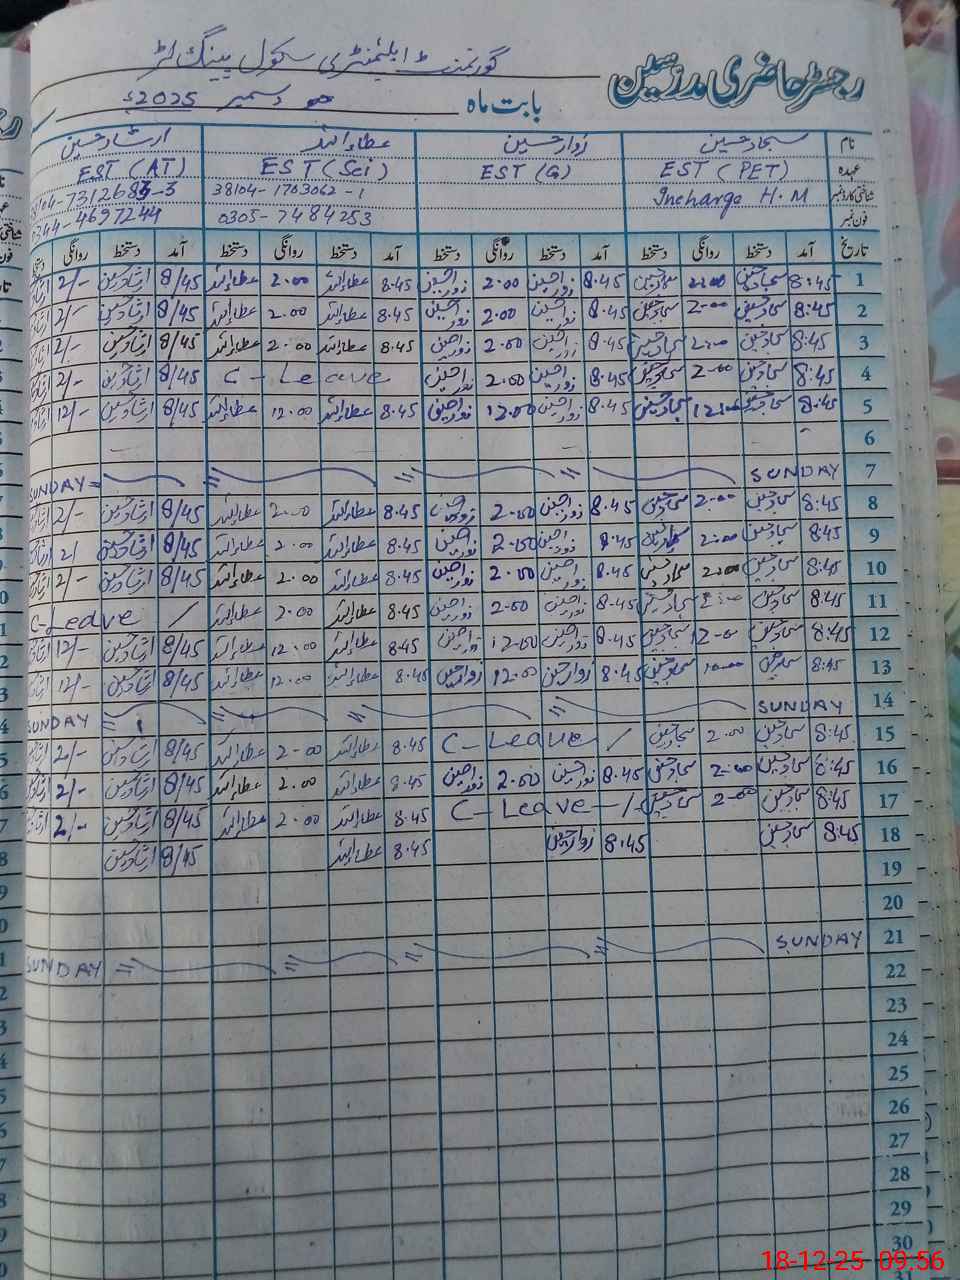 گورنمنٹ ایلیمنٹری سکول پینگ لٹر
رجسٹر حاضری مدرسین
بابت ماہ دسمبر 2025ء
نام سجاد حسین زوار حسین عطاء اللہ ارشاد حسین
عہدہ EST (PET) EST (G) EST (Sci) EST (AT)
شناختی کارڈ نمبر Incharge H.M 38104-1703062-1
فون نمبر 0305-7484253 0344-4697244
تاریخ آمد دستخط روانگی دستخط آمد دستخط روانگی دستخط آمد دستخط روانگی دستخط آمد دستخط روانگی
1 8:45 سجاد حسین 2:00 سجاد حسین 8.45 زوار حسین 2.00 زوار حسین 8.45 عطاء اللہ 2.00 عطاء اللہ 8/45 ارشاد حسین 2/-
2 8:45 سجاد حسین 2:00 سجاد حسین 8.45 زوار حسین 2.00 زوار حسین 8.45 عطاء اللہ 2.00 عطاء اللہ 8/45 ارشاد حسین 2/-
3 8:45 سجاد حسین 2:00 سجاد حسین 8.45 زوار حسین 2.00 زوار حسین 8.45 عطاء اللہ 2.00 عطاء اللہ 8/45 ارشاد حسین 2/-
4 8:45 سجاد حسین 2:00 سجاد حسین 8.45 زوار حسین 2.00 زوار حسین C-Leave 8/45 ارشاد حسین 2/-
5 8:45 سجاد حسین 12:00 سجاد حسین 8.45 زوار حسین 12.00 زوار حسین 8.45 عطاء اللہ 12.00 عطاء اللہ 8/45 ارشاد حسین 12/-
6
7 SUNDAY SUNDAY
8 8:45 سجاد حسین 2:00 سجاد حسین 8.45 زوار حسین 2.00 زوار حسین 8.45 عطاء اللہ 2.00 عطاء اللہ 8/45 ارشاد حسین 2/-
9 8:45 سجاد حسین 2:00 سجاد حسین 8.45 زوار حسین 2.00 زوار حسین 8.45 عطاء اللہ 2.00 عطاء اللہ 8/45 ارشاد حسین 2/
10 8:45 سجاد حسین 2:00 سجاد حسین 8.45 زوار حسین 2.00 زوار حسین 8.45 عطاء اللہ 2.00 عطاء اللہ 8/45 ارشاد حسین 2/-
11 8:45 سجاد حسین 2:00 سجاد حسین 8.45 زوار حسین 2.00 زوار حسین 8.45 عطاء اللہ 2.00 عطاء اللہ / C-Leave
12 8:45 سجاد حسین 12:00 سجاد حسین 8.45 زوار حسین 12.00 زوار حسین 8.45 عطاء اللہ 12.00 عطاء اللہ 8/45 ارشاد حسین 12/-
13 8:45 سجاد حسین سجاد حسین 8.45 زوار حسین 12.00 زوار حسین 8.45 عطاء اللہ 12.00 عطاء اللہ 8/45 ارشاد حسین 12/-
14 SUNDAY SUNDAY
15 8:45 سجاد حسین 2:00 سجاد حسین C-Leave / 8.45 عطاء اللہ 2.00 عطاء اللہ 8/45 ارشاد حسین 2/-
16 8:45 سجاد حسین 2:00 سجاد حسین 8.45 زوار حسین 2.00 زوار حسین 8.45 عطاء اللہ 2.00 عطاء اللہ 8/45 ارشاد حسین 2/-
17 8:45 سجاد حسین 2:00 سجاد حسین C-Leave -/ 8.45 عطاء اللہ 2.00 عطاء اللہ 8/45 ارشاد حسین 2/-
18 8:45 سجاد حسین 8.45 زوار حسین 8.45 عطاء اللہ 8/45 ارشاد حسین
19
20
21 SUNDAY SUNDAY
22
23
24
25
26
27
28
29
30
18-12-25 09:56